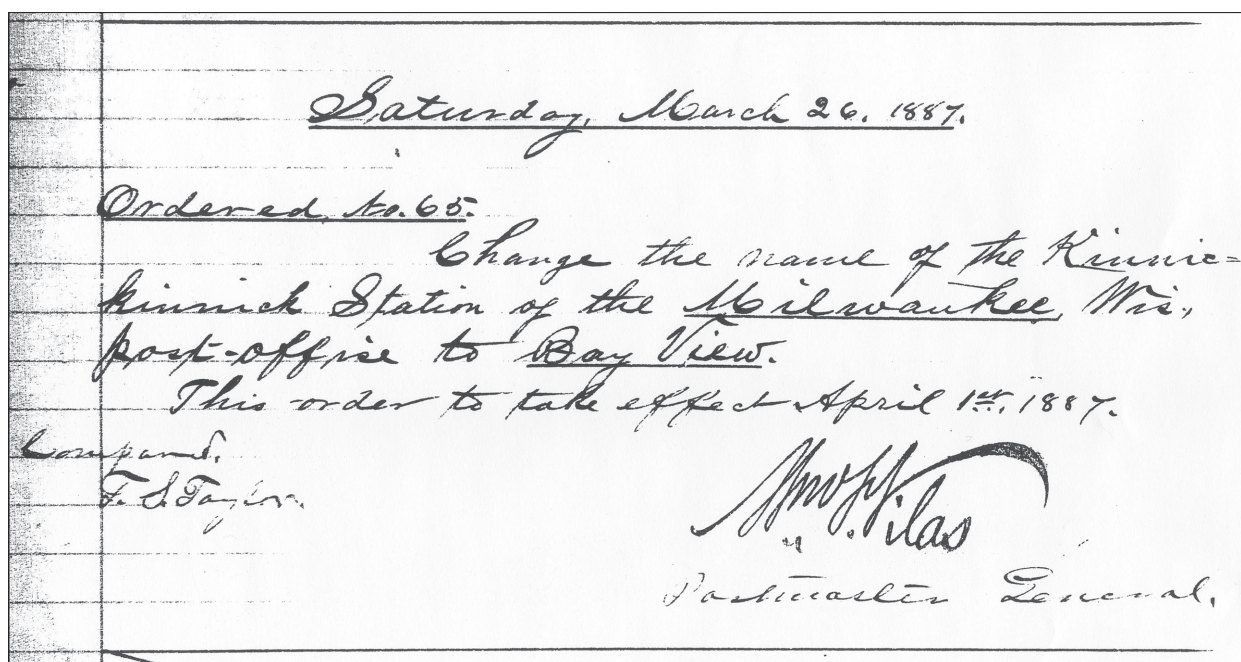 Saturday, March 26. 1887.
Ordered No. 65.
Change the name of the Kinnic=
kinnick Station of the Milwaukee, Wis.,
post-office to Bay View.
This order to take effect April 1st. 1887.
Compared.
F. S. Taylor.
Wm. F. Vilas
Postmaster General.